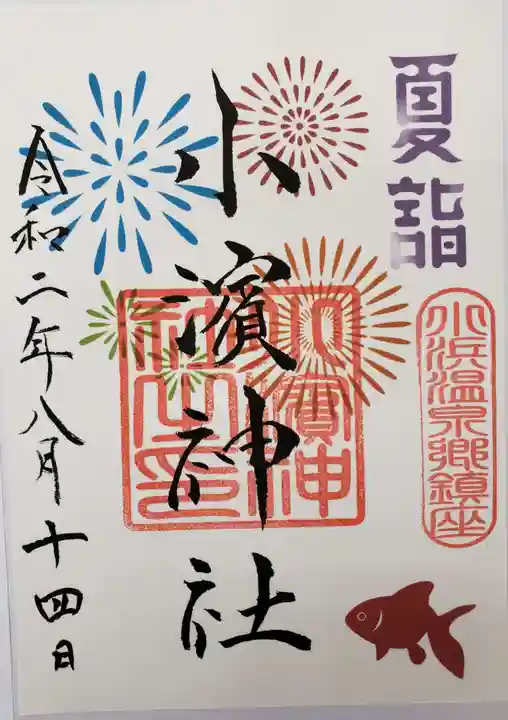 夏詣
小浜温泉郷鎮座
小濱神社
小濱神社之印
令和二年八月十四日